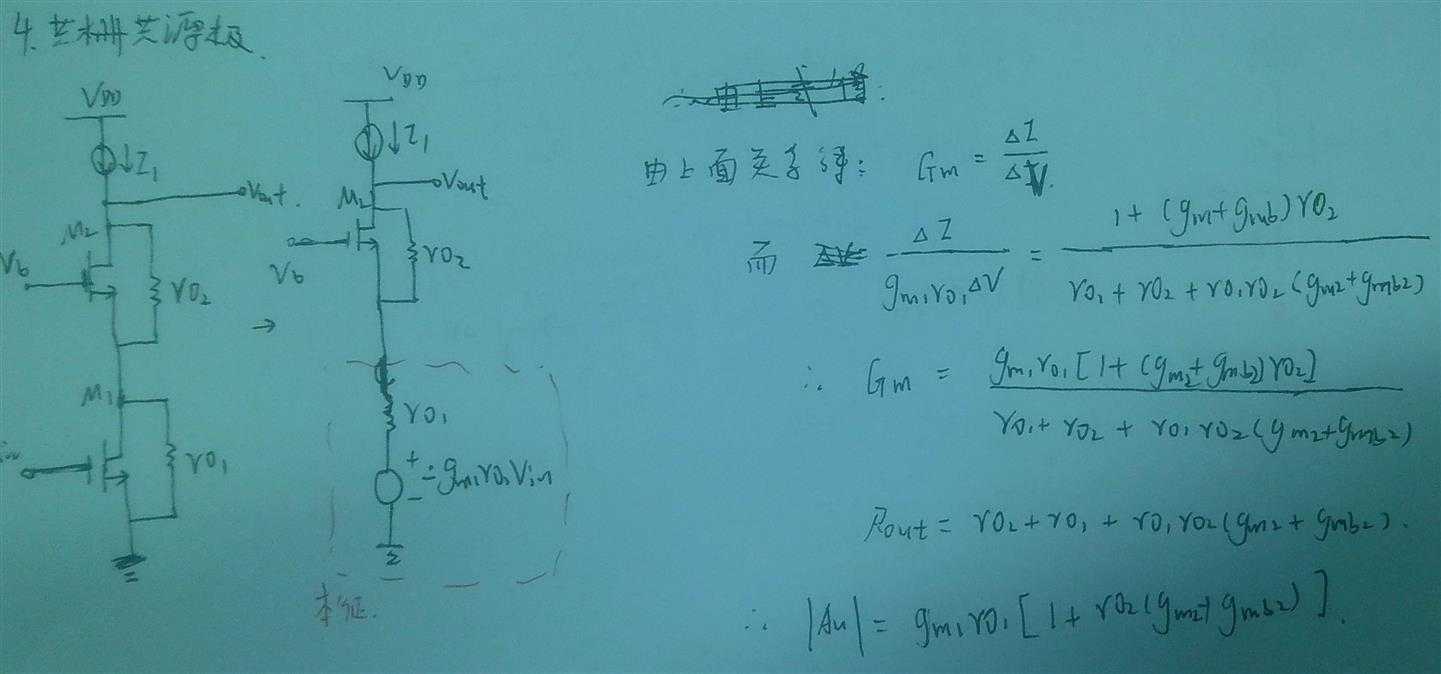 4. 共栅共源极.
VDD
↓I1
Vout.
M2
Vb
rO2
→
M1
rO1
VDD
↓I1
Vout
M2
Vb
rO2
rO1
+
-
= gm1rO1Vin
本征.
由上面关系得: Gm = ΔI/ΔV.
而 ΔI/(gm1rO1ΔV) = (1 + (gm+gmb)rO2)/(rO1 + rO2 + rO1rO2(gm2+gmb2))
∴ Gm = gm1rO1[1 + (gm2+gmb2)rO2]/(rO1 + rO2 + rO1rO2(gm2+gmb2))
Rout = rO2 + rO1 + rO1rO2(gm2 + gmb2).
∴ |Au| = gm1rO1[1 + rO2(gm2+gmb2)].